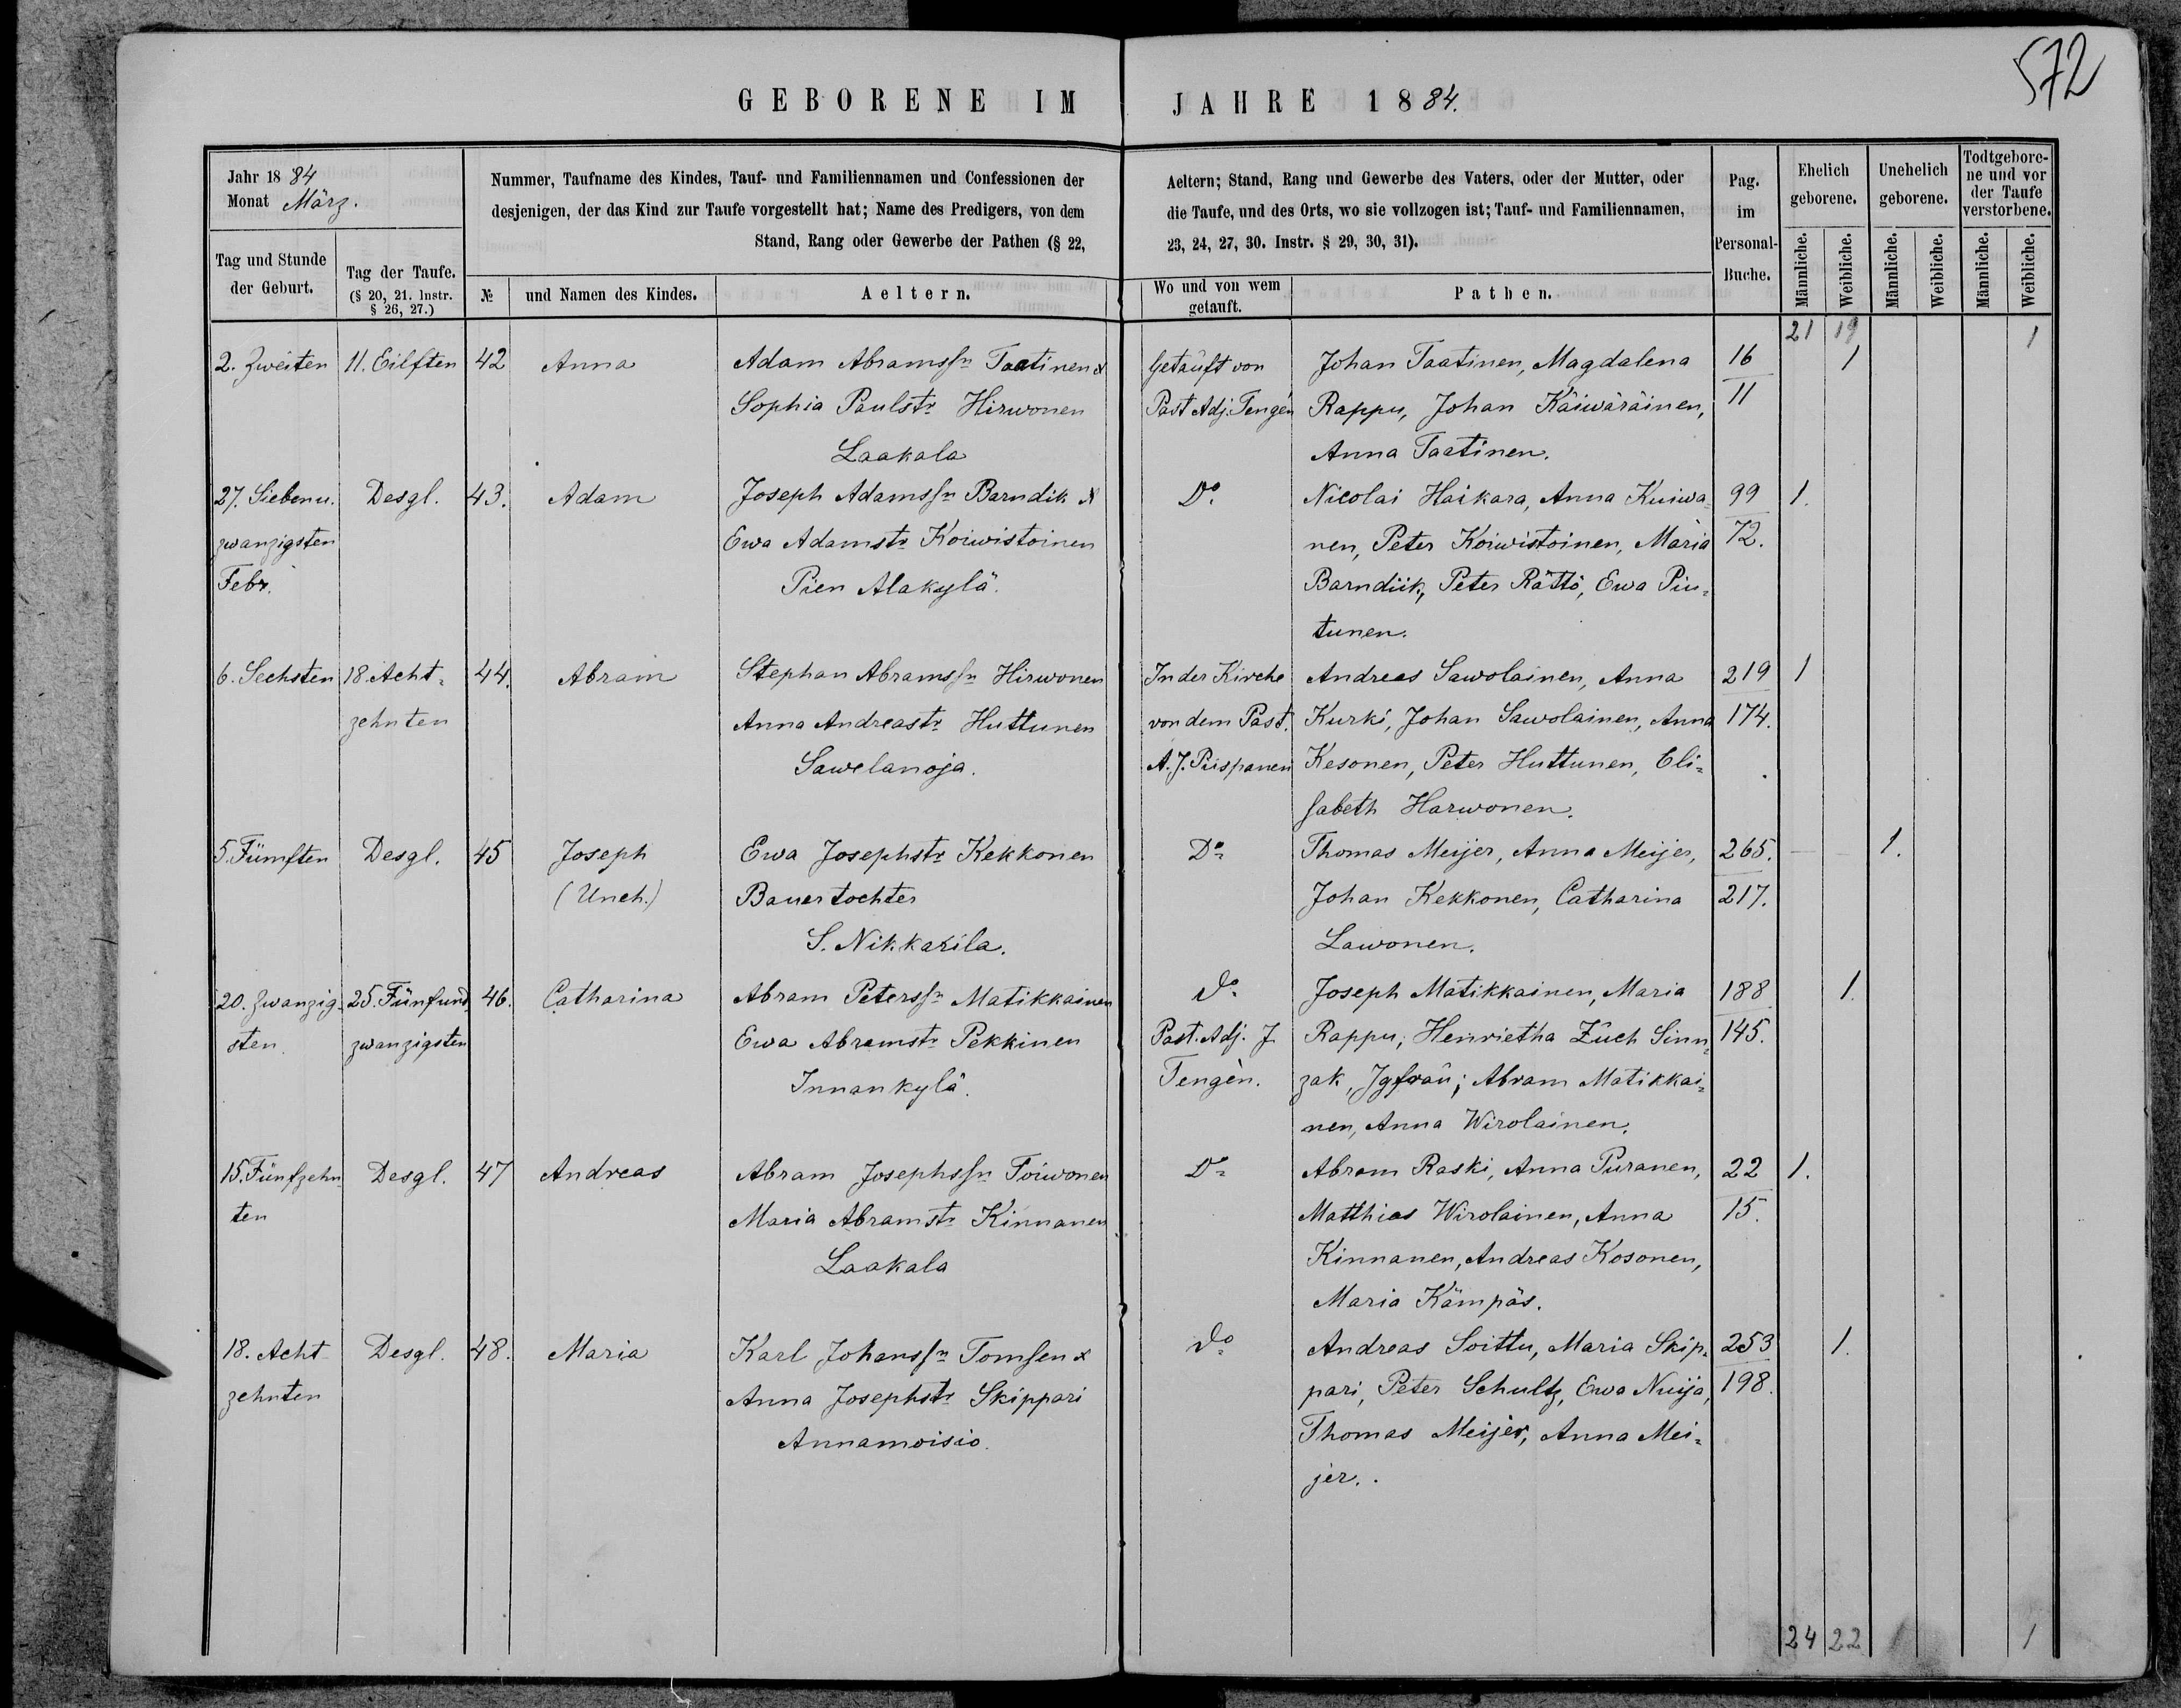 572
GEBORENE IM JAHRE 1884.
Jahr 1884
Monat März.
Nummer, Taufname des Kindes, Tauf- und Familiennamen und Confessionen der
desjenigen, der das Kind zur Taufe vorgestellt hat; Name des Predigers, von dem
Stand, Rang oder Gewerbe der Pathen (§ 22,
Aeltern; Stand, Rang und Gewerbe des Vaters, oder der Mutter, oder
die Taufe, und des Orts, wo sie vollzogen ist; Tauf- und Familiennamen,
23, 24, 27, 30. Instr. § 29, 30, 31).
Pag.
im
Personal-
Buche.
Ehelich
geborene.
Unehelich
geborene.
Todtgebore-
ne und vor
der Taufe
verstorbene.
Tag und Stunde
der Geburt.
Tag der Taufe.
(§ 20, 21. Instr.
§ 26, 27.)
№
und Namen des Kindes.
Aeltern.
Wo und von wem
getauft.
Pathen.
Männliche.
Weibliche.
Männliche.
Weibliche.
Männliche.
Weibliche.
21 19 1
2. Zweiten 11. Eilften 42 Anna Adam Abramssn Taatinen & Getauft von Johan Taatinen, Magdalena 16 1
Sophia Paulstr Hirwonen Past Adj. Tengén Rappu, Johan Käiwäräinen, 11
Laakala Anna Taatinen.
27. Siebenu. Desgl. 43. Adam Joseph Adamssn Barndik & Do Nicolai Haikara, Anna Kuiwa- 99 1.
zwanzigsten Ewa Adamstr Koiwistoinen nen, Peter Koiwistoinen, Maria 72.
Febr. Pien Alakylä. Barndiik, Peter Rättö, Ewa Piu-
tunen.
6. Sechsten 18. Acht- 44. Abram Stephan Abramssn Hirwonen In der Kirche Andreas Sawolainen, Anna 219 1
zehnten Anna Andreastr Huttunen von dem Past. Kurki, Johan Sawolainen, Anna 174.
Sawelanoja. A. J. Piispanen Kesonen, Peter Huttunen, Eli-
sabeth Harwonen.
5. Fümften Desgl. 45 Joseph Ewa Josephstr Kekkonen Do Thomas Meijer, Anna Meijer, 265. 1.
(Uneh.) Bauertochter Johan Kekkonen, Catharina 217.
S. Nikkarila. Lawonen.
20. Zwanzig- 25. Fünfund 46. Catharina Abram Peterssn Matikkainen Do Joseph Matikkainen, Maria 188 1.
sten. zwanzigsten Ewa Abramstr Pekkinen Past. Adj. J. Rappu; Henrietha Züch Sinn- 145.
Innankylä. Tengèn. zak, Jgfrau; Abram Matikkai-
nen, Anna Wirolainen.
15. Fünfzehn- Desgl. 47 Andreas Abram Josephssn Toiwonen Do Abram Raski, Anna Puranen, 22 1.
ten Maria Abramstr Kinnanen Matthias Wirolainen, Anna 15.
Laakala Kinnanen, Andreas Kosonen,
Maria Kämpäs.
18. Acht- Desgl. 48. Maria Karl Johanssn Tomsen & Do Andreas Soittu, Maria Skip- 253 1.
zehnten Anna Josephstr Skippari pari, Peter Schultz, Ewa Nuija, 198.
Annamoisio. Thomas Meijer, Anna Mei-
jer.
24 22 1 1